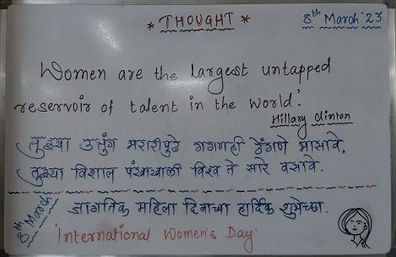 * THOUGHT *
8th March '23
Women are the largest untapped
reservoir of talent in the world.'
Hillary Clinton
तुझ्या उत्तुंग भरारीपुढे गगनही ठेंगणे भासावे,
तुझ्या विशाल पंखाखाली विश्व ते सारे वसावे.
8th March
जागतिक महिला दिनाच्या हार्दिक शुभेच्छा.
'International Women's Day'